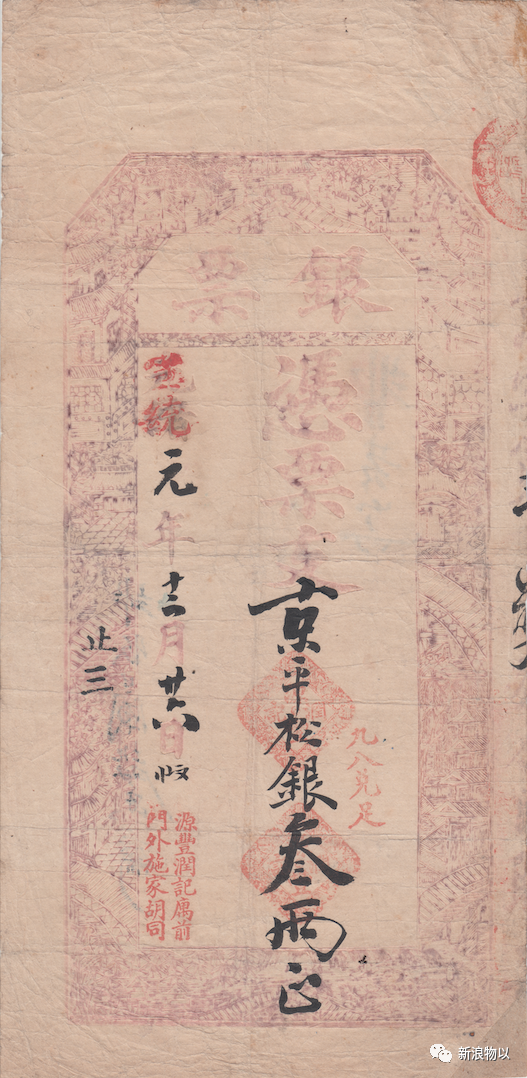 銀票
憑票支
京平松銀叁兩正
九八兑足
宣統元年十二月廿六日收
止三
源豐潤記寓前
門外施家胡同
新浪物以